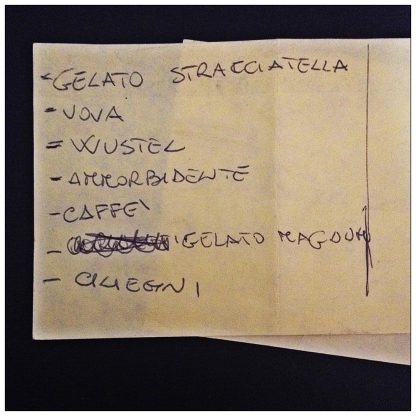 - GELATO STRACCIATELLA
- UOVA
= WUSTEL
- AMMORBIDENTE
- CAFFE'
- GELATO MAGNUM
- CILIEGNI